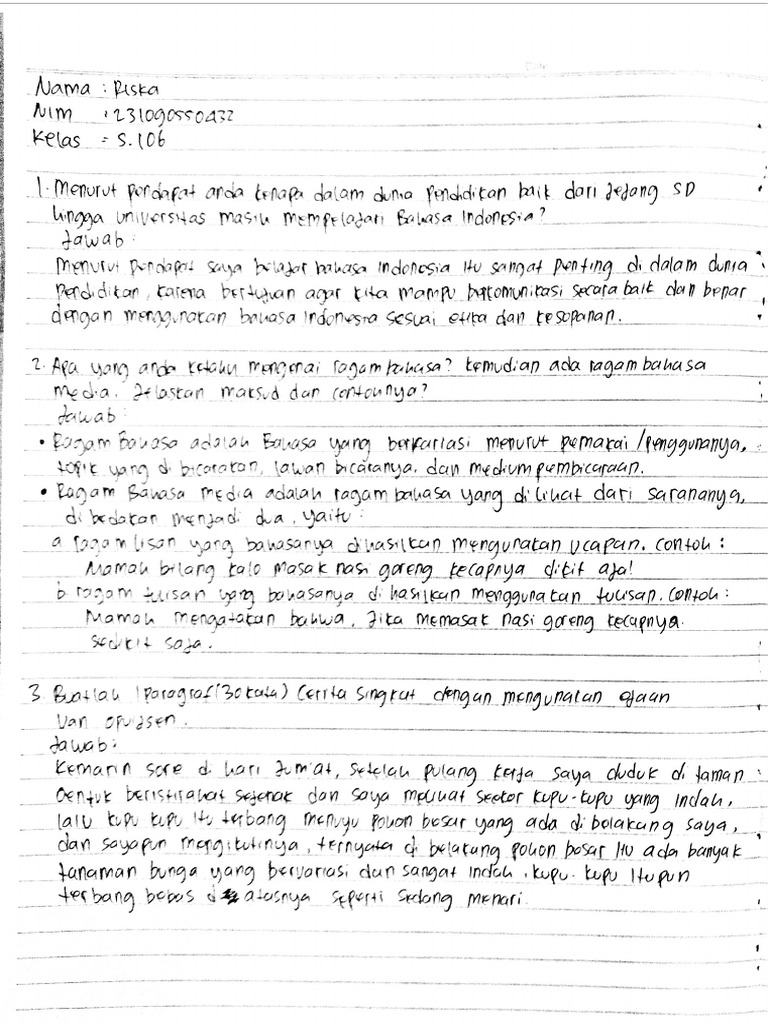 Nama : Riska
NIM : 231090550432
Kelas = S.106
1. Menurut pendapat anda kenapa dalam dunia pendidikan baik dari jejang SD
hingga universitas masih mempelajari Bahasa Indonesia?
Jawab :
Menurut pendapat saya belajar bahasa Indonesia itu sangat penting di dalam dunia
pendidikan, karena bertujuan agar kita mampu berkomunikasi secara baik dan benar
dengan menggunakan bahasa Indonesia sesuai etika dan kesopanan.
2. Apa yang anda ketahui mengenai ragam bahasa? kemudian ada ragam bahasa
media. Jelaskan maksud dan contohnya?
Jawab :
• Ragam Bahasa adalah Bahasa yang berfariasi menurut pemakai/penggunanya,
topik yang di bicarakan, lawan bicaranya, dan medium pembicaraan.
• Ragam Bahasa media adalah ragam bahasa yang dilihat dari sarananya,
di bedakan menjadi dua, yaitu :
a ragam lisan yang bahasanya dihasilkan mengunakan ucapan. contoh :
Mamah bilang kalo masak nasi goreng kecapnya dikit aja!
b ragam tulisan yang bahasanya di hasilkan menggunakan tulisan. contoh :
Mamah mengatakan bahwa, Jika memasak nasi goreng kecapnya
sedikit saja.
3. Buatlah 1 paragraf (30 kata) cerita singkat dengan mengunakan ejaan
Van opuijsen.
Jawab :
Kemarin sore di hari Jum'at, setelah pulang kerja saya duduk di taman
Oentuk beristirahat sejenak dan saya melihat seekor kupu-kupu yang indah,
lalu kupu kupu itu terbang menuyu pohon besar yang ada di belakang saya,
dan sayapun mengikutinya, ternyata di belakang pohon besar itu ada banyak
tanaman bunga yang bervariasi dan sangat indah, kupu-kupu itupun
terbang bebas di atasnya seperti sedang menari.